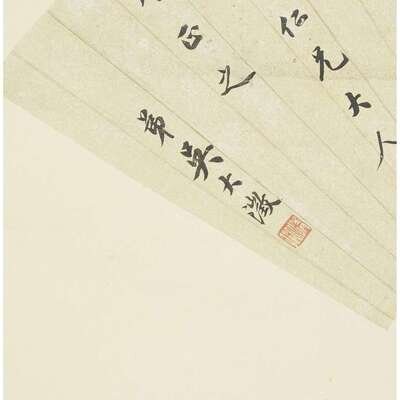 仁兄大人
正之
弟吴大澂